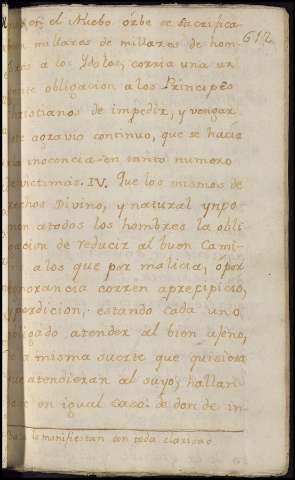 612
en el Nuebo orbe se sacrifica
millares de millares de hom
a los Ydolos, corria una ur
obligacion a los Principes
christianos de impedir, y vengar
agravio continuo, que se hacia
inocencia en tanto numero
victimas. IV. Que los mismos de
rechos Divino, y natural ynpo
nen atodos los hombres la obli
gacion de reducir al buen Cami
a los que por malicia, ópor
ignorancia corren aprecipicio,
y perdicion, estando cada uno
obligado atender al bien ajeno,
de la misma suerte que quisiera
que atendieran al suyo, hallan
dose en igual caso. de donde in
lo manifiestan con toda claridad